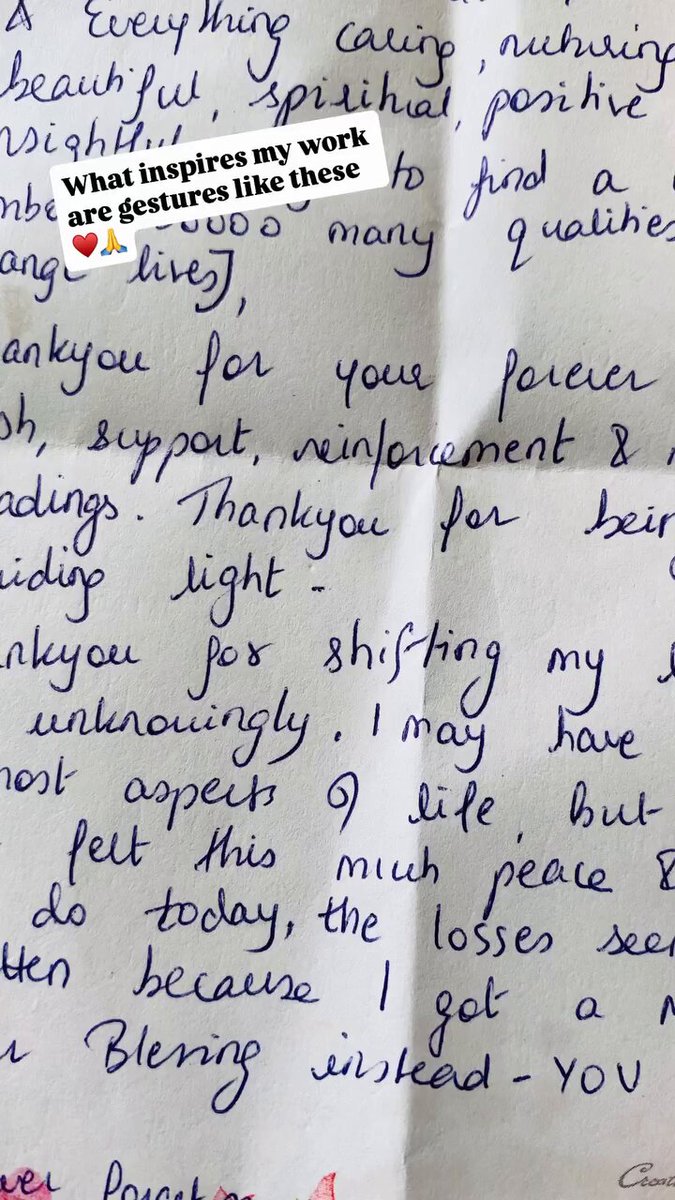 & Everything caring, nuturing
beautiful, spiritual, positive
nsightful
What inspires my work
are gestures like these
♥️🙏
to find a
0000 many qualities
ange lives],
ankyou for your forever
sh, support, reinforcement &
adings. Thankyou for bein
uiding light -
nkyou for shifting my
unknowingly. I may have
most aspects of life, but
felt this much peace &
do today, the losses see
tten because I got a
Blessing instead - YOU
ver Forget
Creat